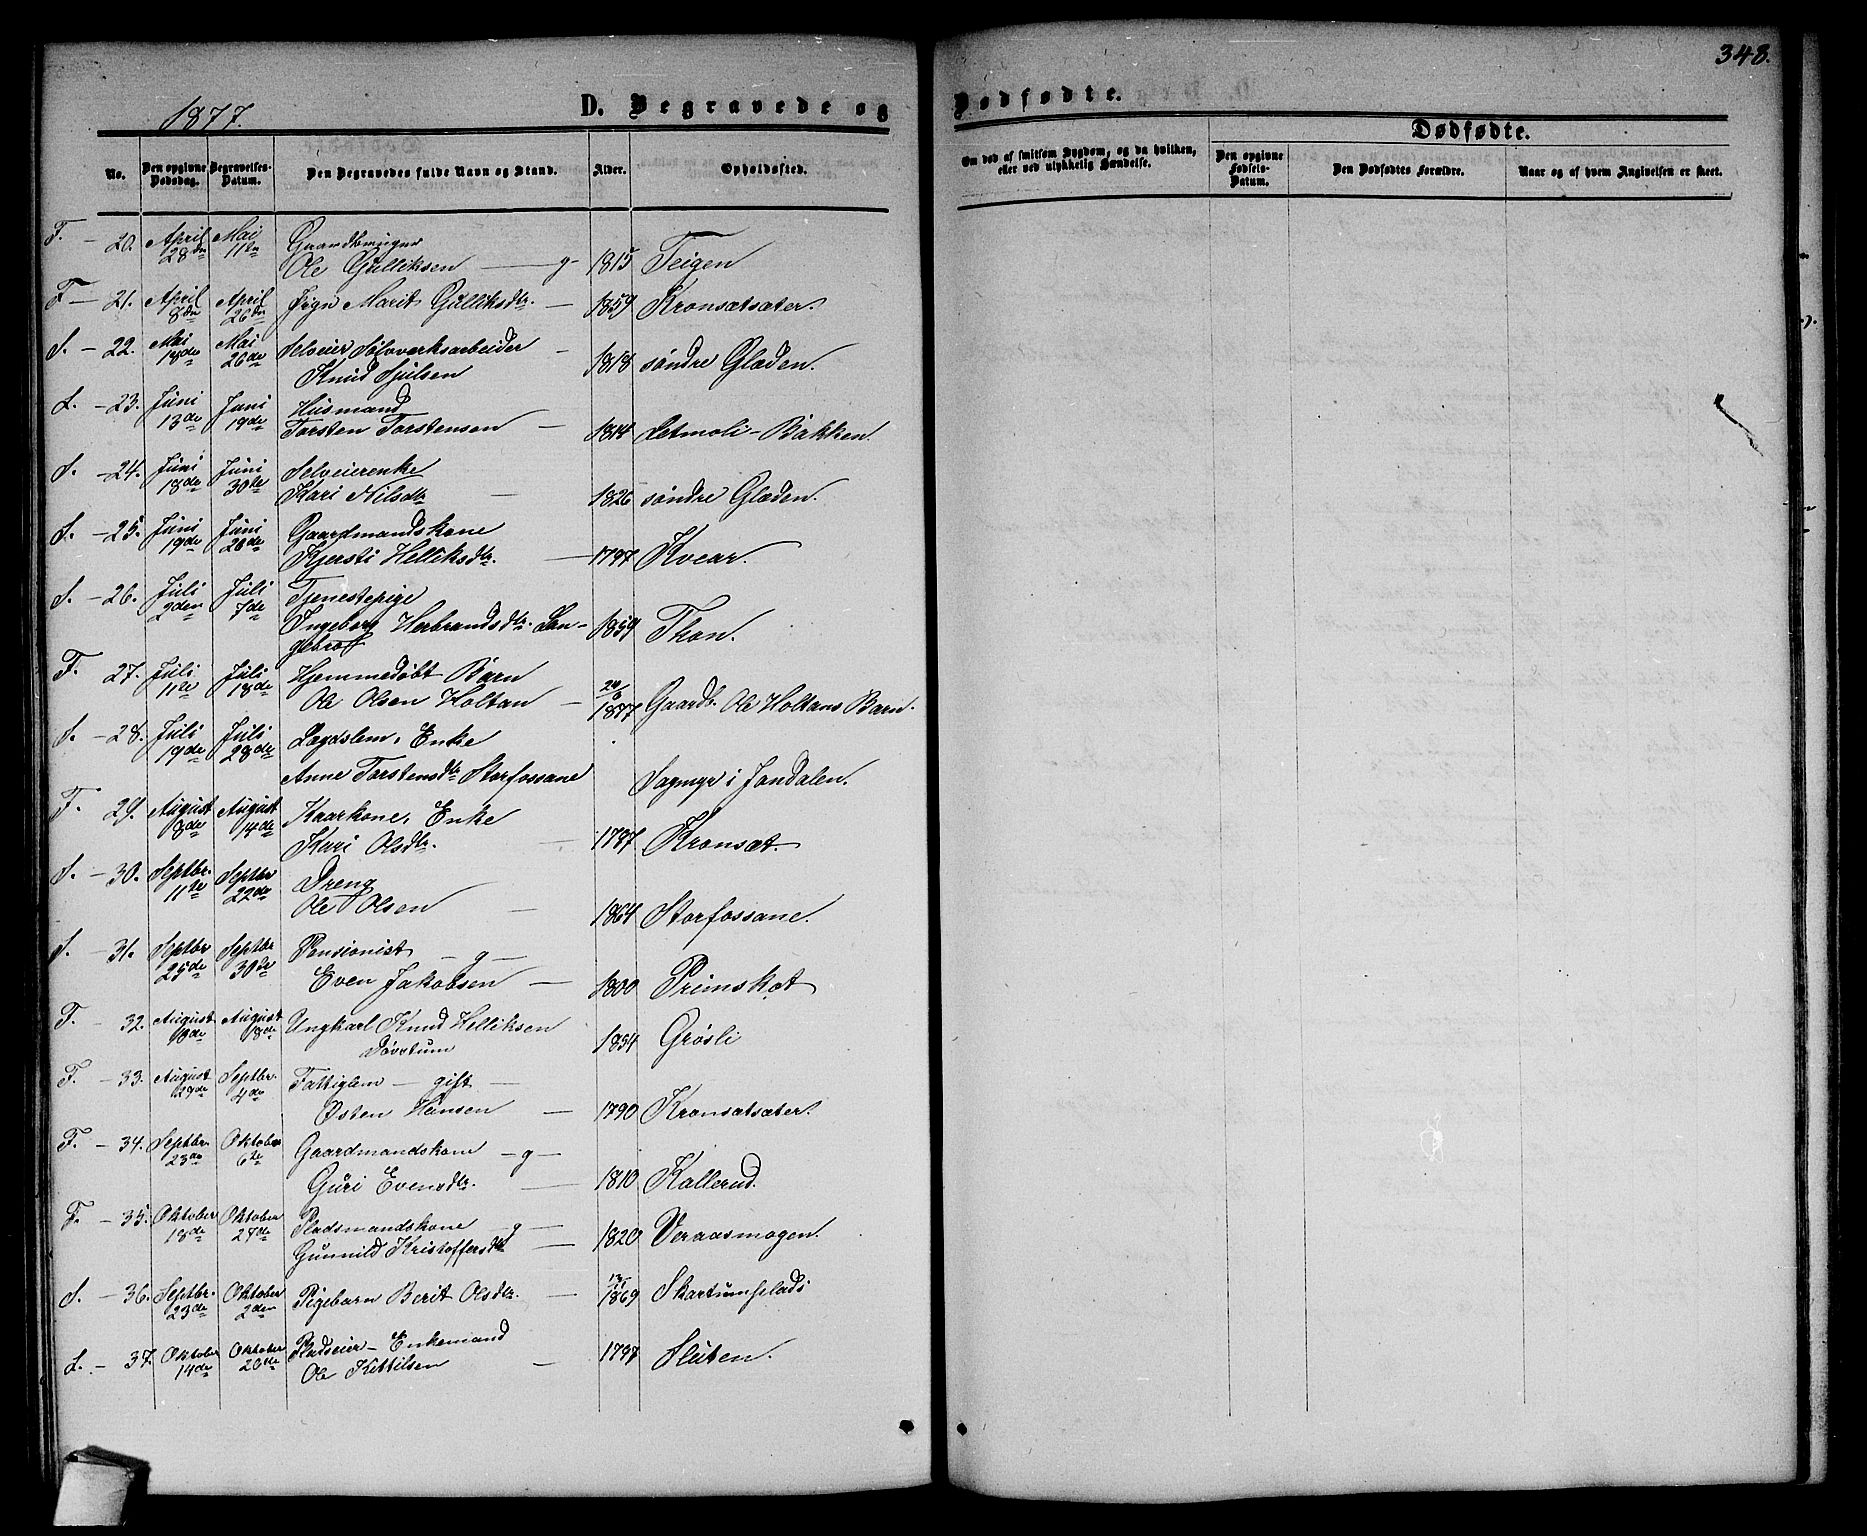 348.
1877. D. Begravede og Dødfødte.
Dødfødte.
No. Den opgivne Dødsdag. Begravelses-Datum. Den Begravedes fulde Navn og Stand. Alder. Opholdssted. Om død af smitsom Sygdom, og da hvilken, eller ved ulykkelig Hændelse. Den opgivne Fødsels-Datum. Den Dødfødtes Forældre. Naar og af hvem Angivelsen er skeet.
F. - 20. April 28de Mai 11te Gaardbruger
Ole Gulliksen - g - 1815 Teigen
F - 21. April 8de April 26de Marit Gulliksdtr. - 1859 Kronsætsæter.
S. - 22. Mai 18de Mai 26de Selveier Sølvverksarbeider -
Knud Sjulsen 1818 søndre Glæden.
L. - 23. Juni 13de Juni 19de Husmand
Torsten Torstensen - 1814 Letmoli-Bakken.
S. - 24. Juni 18de Juni 30te Selveierenke
Kari Nilsdtr - 1826 søndre Glæden.
S. - 25. Juni 19de Juni 26de Gaardmandskone
Kjersti Helliksdtr. - 1797 Kvear.
S. - 26. Juli 2den Juli 7de Tjenestepige
Ingeborg Herbrandsdtr. Lan- 1859 Thon.
gebrof
F. 27. Juli 11te Juli 18de Hjemmedøbt Barn
Ole Olsen Holtan - 24/6 1877 Gaardb. Ole Holtans Barn.
S. - 28. Juli 19de Juli 28de Lægdslem, Enke
Anne Torstensdtr Storfossane Sagmyr i Jondalen.
F. - 29. August 8de August 14de Kaarkone, Enke
Kari Olsdtr. - 1787 Kronsæt.
S. - 30. Septbr. 11te Septbr 22de Dreng
Ole Olsen - 1864 Storfossane.
S. - 31. Septbr 25de Septbr 30de Pensionist - g -
Even Jakobsen - 1800 Primskot
F. - 32. August 10de August 18de Ungkarl Knud Helliksen
Døvetum 1854 Grøsli
F. - 33. August 29de Septbr. 4de Fattiglem - gift -
Østen Hansen - 1790 Kronsætsæter.
F. - 34. Septbr. 23de Oktober 6te Gaardmandskone - g -
Guri Evensdtr. - 1810 Kallerud.
F. - 35. Oktober 18de Oktober 27de Pladsmandskone - g -
Gunnild Kristoffersdtr - 1820 Veraasmogen.
S. - 36. Septbr. 23de Oktober 2den Pigebarn Berit Olsdtr. - 1869 Skartumsplads
L. - 37. Oktober 14de Oktober 20de Pladseier - Enkemand
Ole Kittilsen - 1797 Sluten.